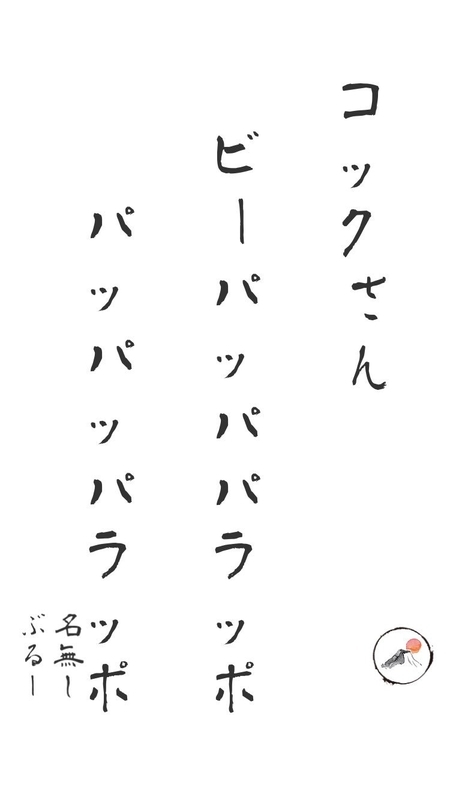 コックさん
ビーパッパパラッポ
パッパッパラッポ
名無し
ぶるー